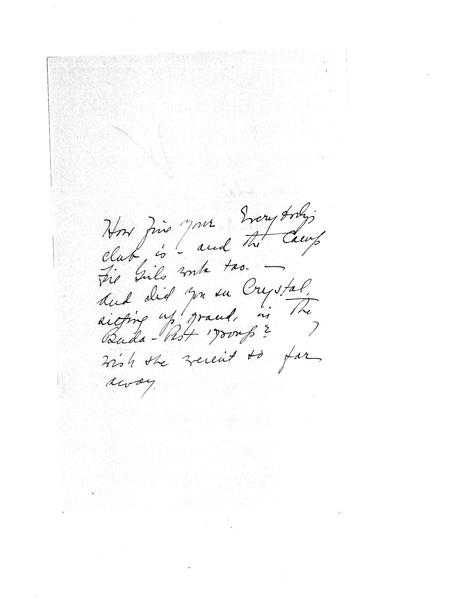 How fine your Everybody's
club is - and the Camp
Fire Girls work too. —
And did you see Crystal,
sitting up grand, in the
Buda-Pest group? I
wish she weren't so far
away.